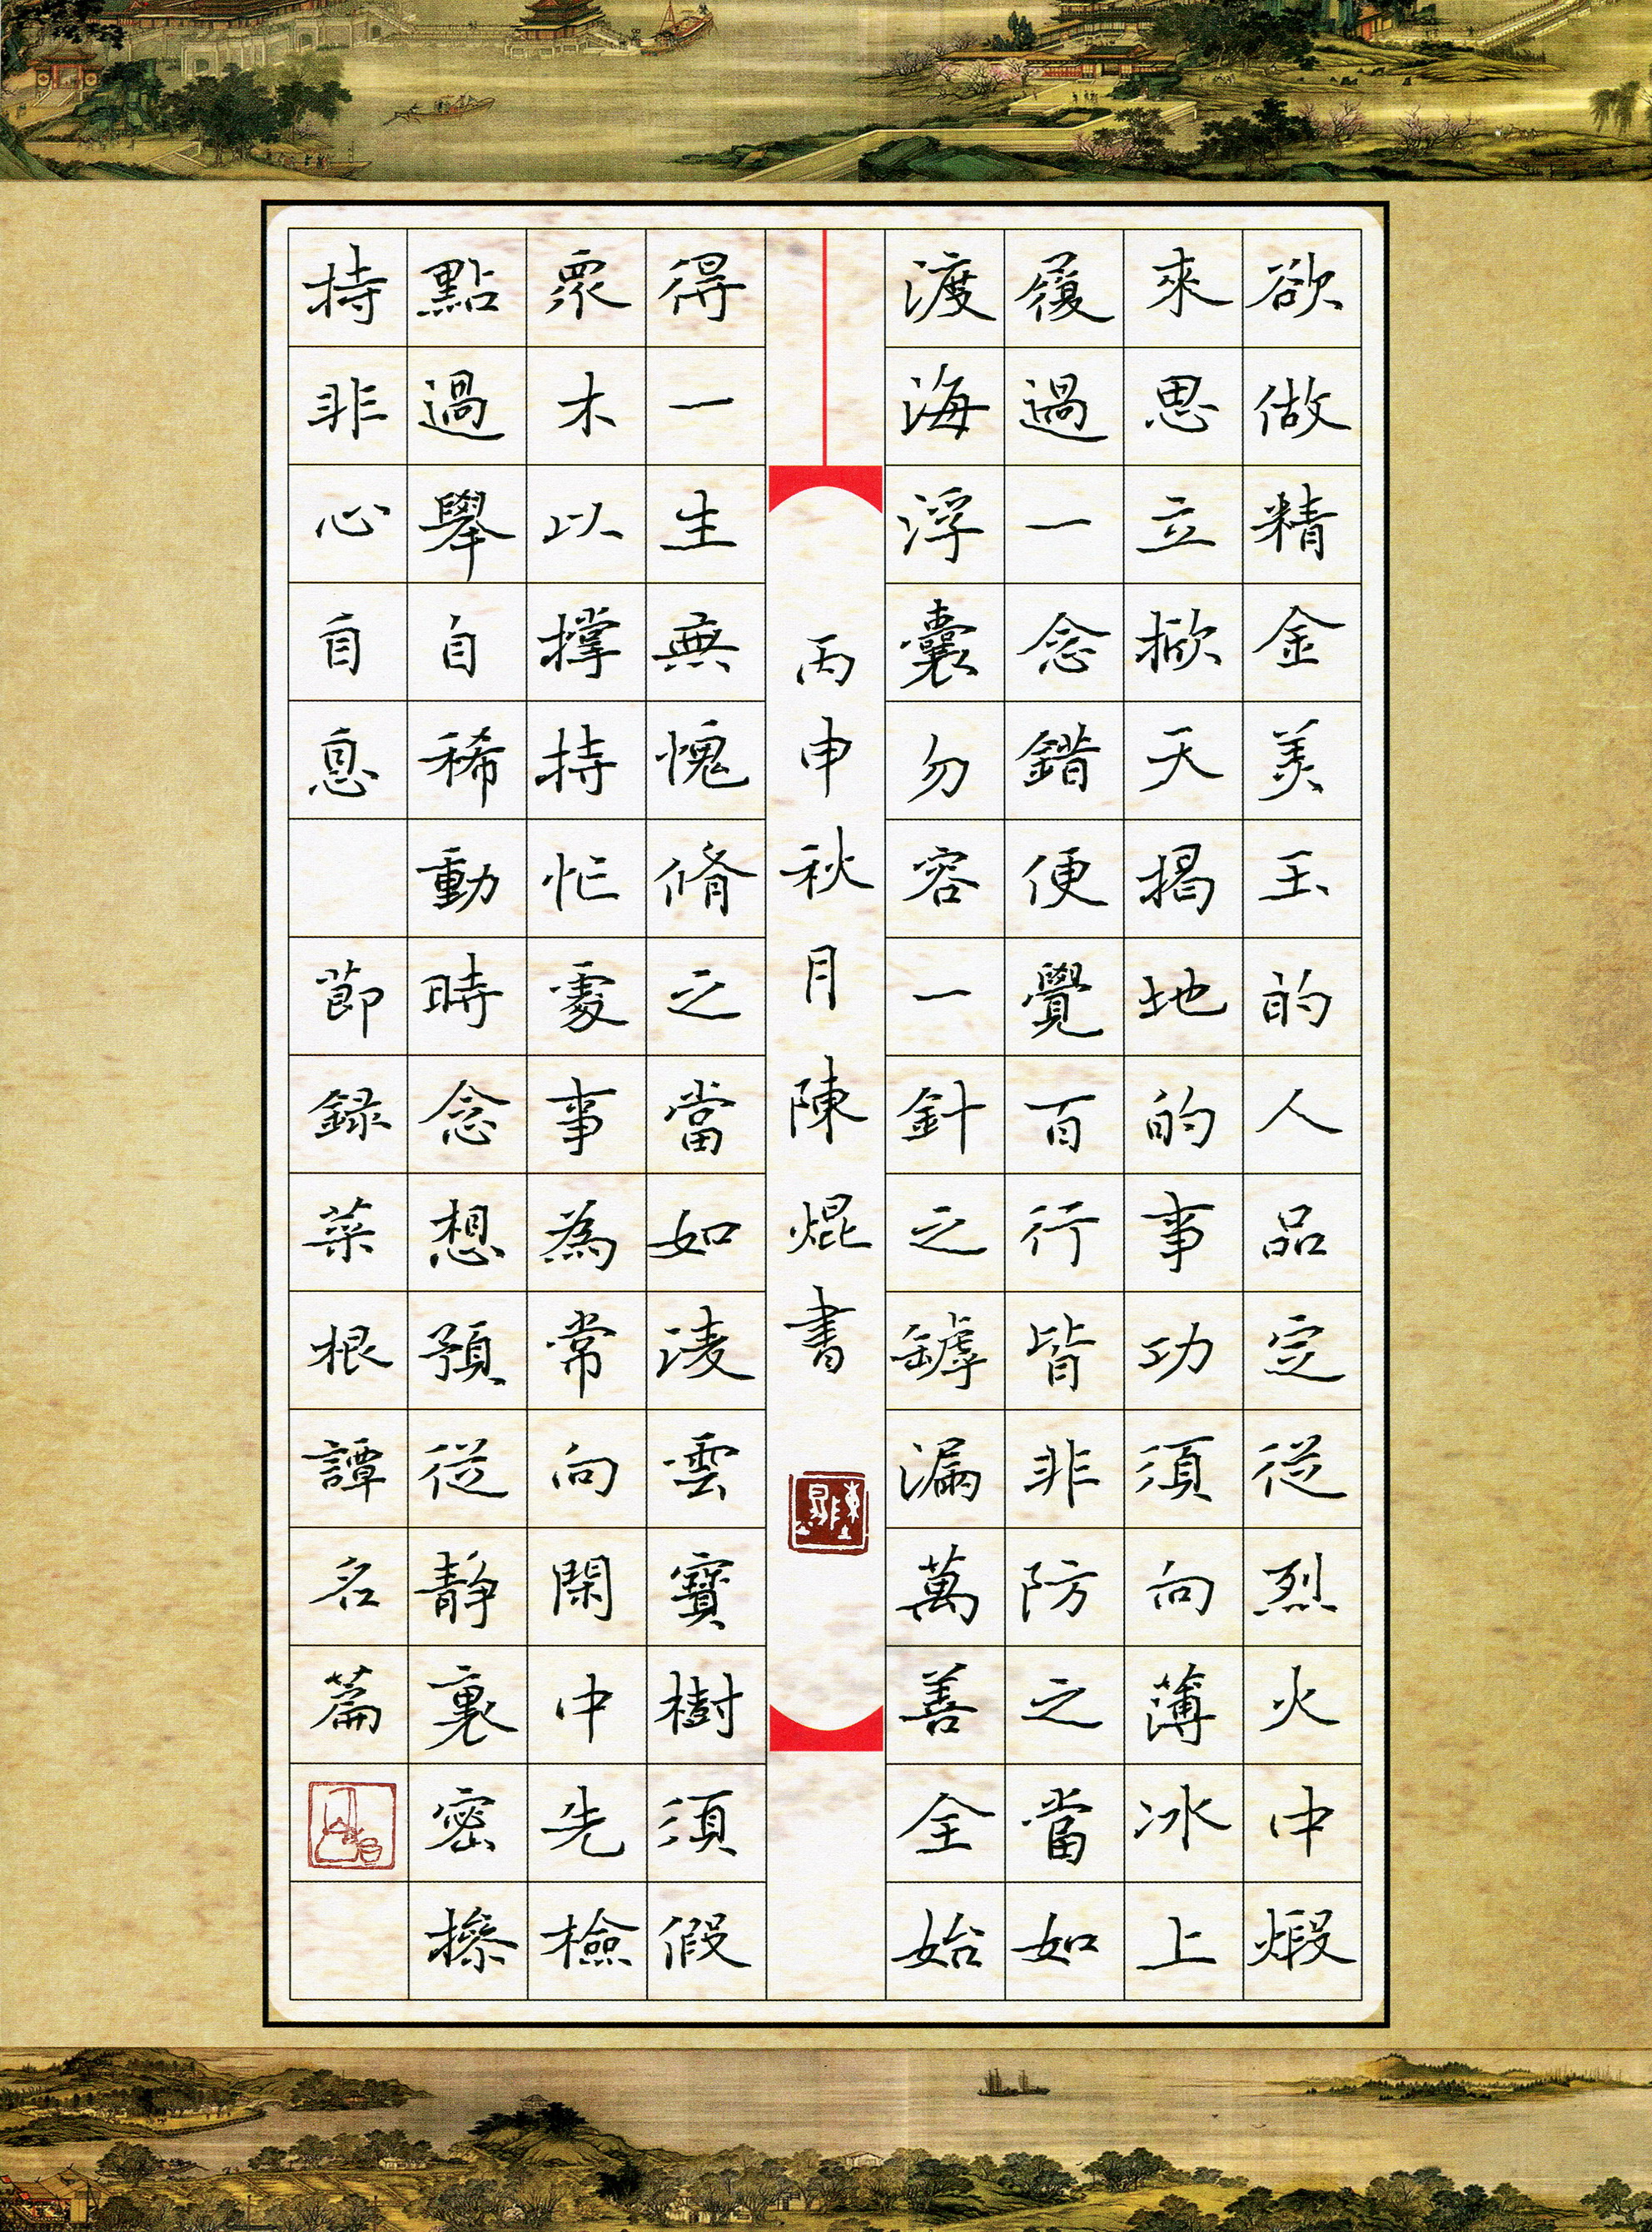 欲做精金美玉的人品定從烈火中煅
來思立掀天揭地的事功須向薄冰上
履過一念錯便覺百行皆非防之當如
渡海浮囊勿容一針之罅漏萬善全始
得一生無愧脩之當如凌雲寶樹須假
眾木以撐持忙處事為常向閑中先檢
點過舉自稀動時念想預從靜裏密操
持非心自息 節録菜根譚名篇
丙申秋月陳焜書